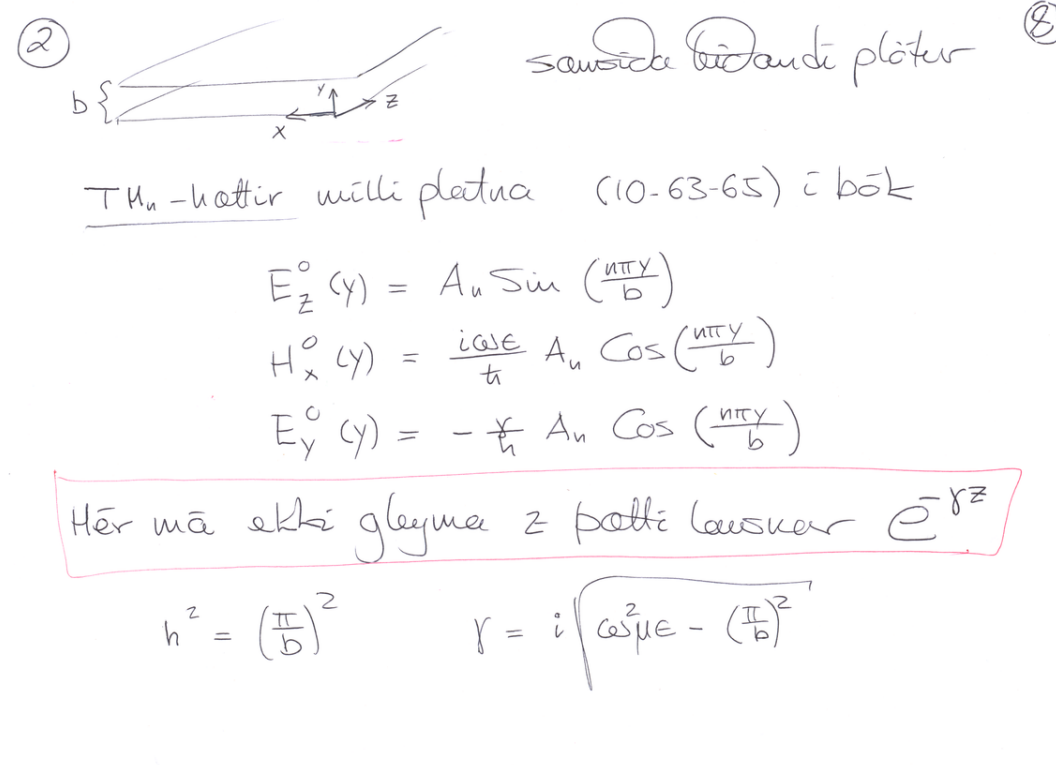 ② samsíða leiðandi plötur ⑧
b { y z x
TM_n-hættir milli platna (10-63-65) í bók
E_z^0 (y) = A_n Sin (nπy/b)
H_x^0 (y) = iωε/h A_n Cos (nπy/b)
E_y^0 (y) = - γ/h A_n Cos (nπy/b)
Hér má ekki gleyma z þætti lausnar e^{-γz}
h^2 = (π/b)^2 γ = i√(ω^2με - (π/b)^2)